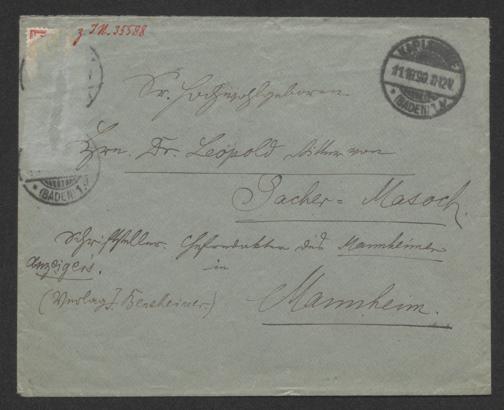 z I.N. 35588
KARLSRUHE
11.10.90.11-12V.
* (BADEN) 1. *
Sr. Hochwohlgeboren
Hrn. Dr. Leopold Ritter von
Sacher-Masoch.
(BADEN) 1.
Schriftsteller. Chefredakteur des Mannheimer
Anzeigers.
in
(Verlag J. Bensheimer.)
Mannheim.